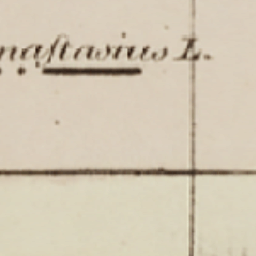 naſtasius L.